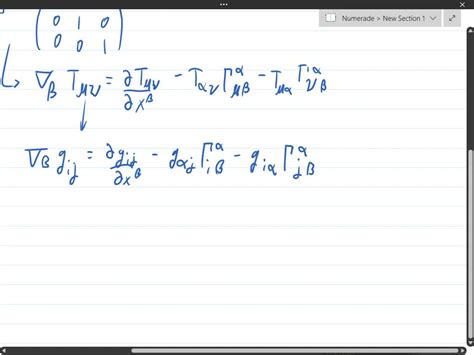 Numerade > New Section 1
0 1 0
0 0 1
∇_β T_μν = ∂T_μν/∂x^β - T_αν Γ^α_μβ - T_μα Γ^α_νβ
∇_β g_ij = ∂g_ij/∂x^β - g_αj Γ^α_iβ - g_iα Γ^α_jβ